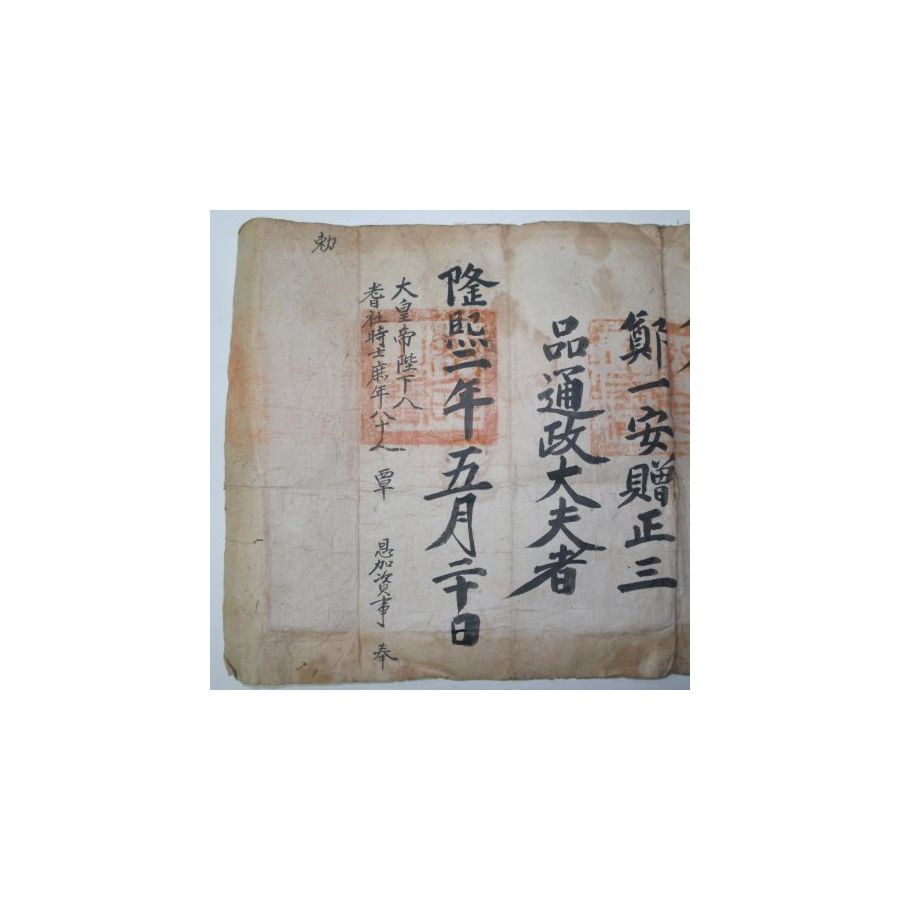 鄭一安贈正三
品通政大夫者
隆熙二年五月二十日
大皇帝陛下入
耆社時士庶年八十人 覃
恩加資事 奉
勅